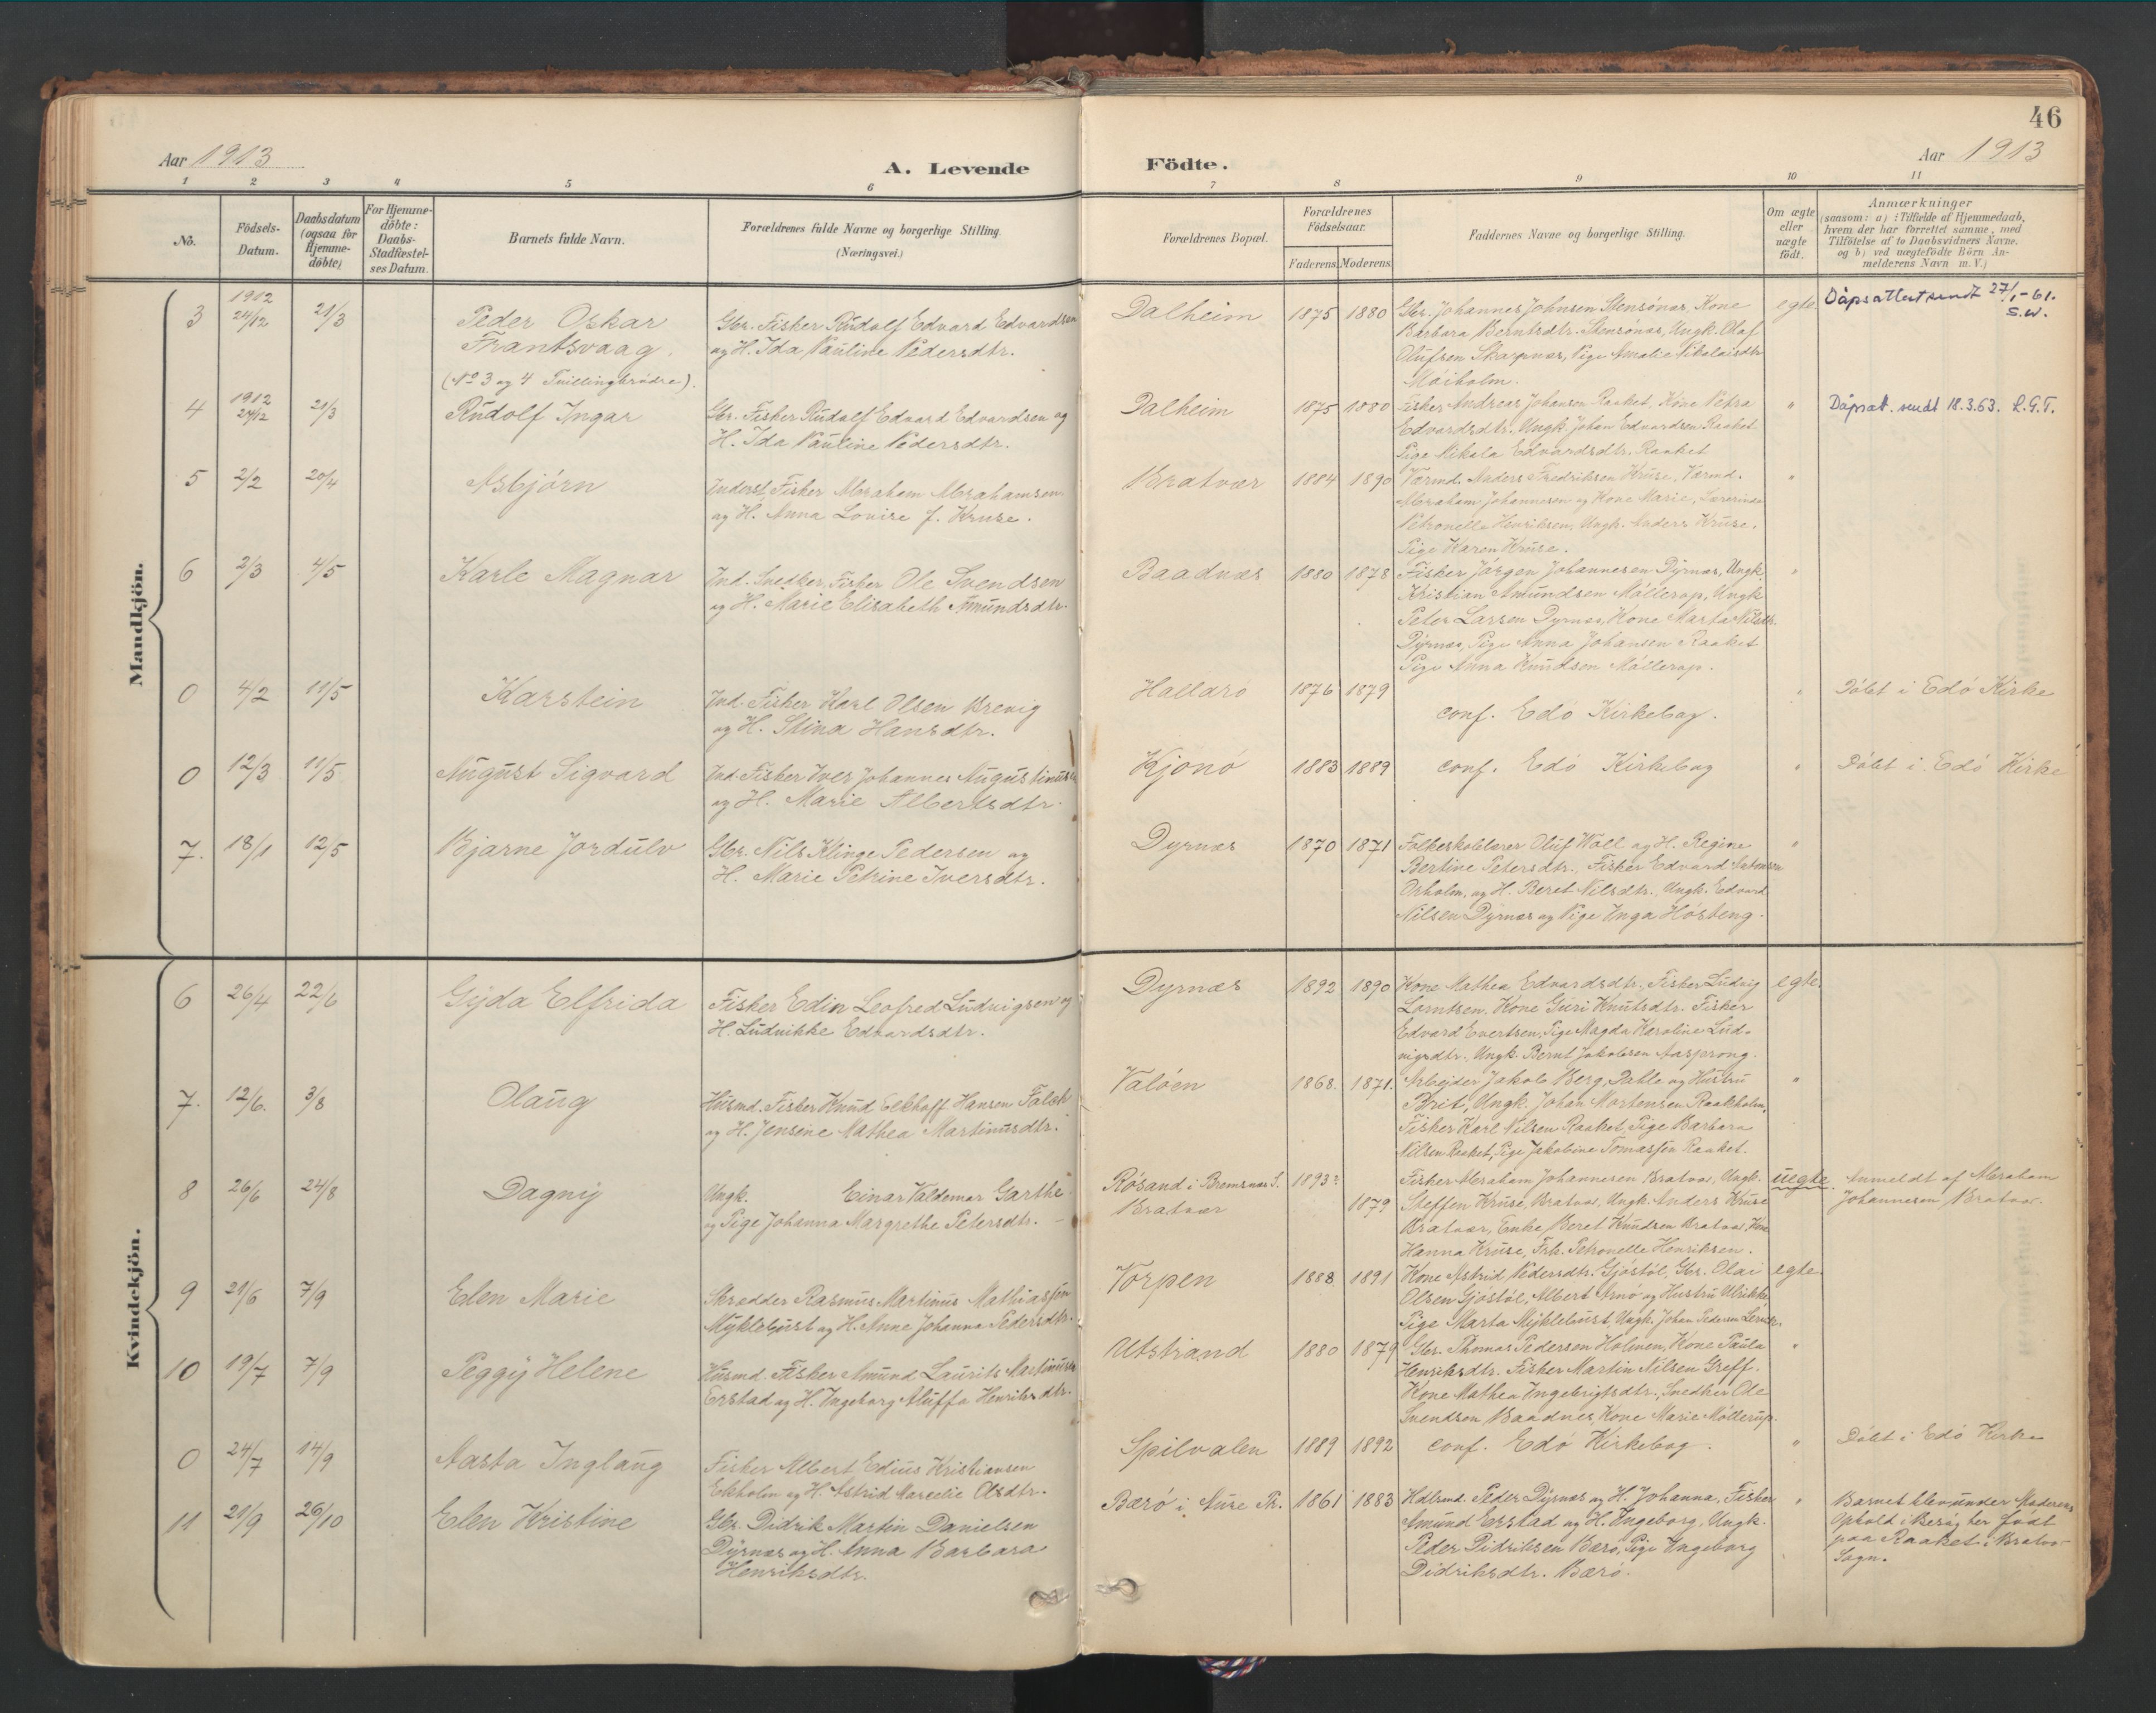 46
Aar 1913
A. Levende Födte.
Aar 1913
1 2 3 4 5 6 7 8 9 10 11
No.
Födsels-Datum.
Daabsdatum (ogsaa for Hjemmedöbte)
For Hjemmedöbte: Daabs-Stadfæstelses Datum.
Barnets fulde Navn.
Forældrenes fulde Navne og borgerlige Stilling. (Næringsvei.)
Forældrenes Bopæl.
Forældrenes Födselsaar.
Faderens. Moderens.
Faddernes Navne og borgerlige Stilling.
Om ægte eller uægte födt.
Anmærkninger
(saasom: a) i Tilfælde af Hjemmedaab,
hvem der har forrettet samme, med
Tilföielse af to Daabsvidners Navne,
og b) ved uægtefödte Börn Anmelderens Navn m. V.)
Mandkjön.
3 1912 24/12 21/3 Peder Oskar
Frantsvaag.
(No 3 og 4 Tvillingbrødre).
Gbr. Fisker Rudolf Edvard Edvardsen
og H. Ida Pauline Pedersdtr.
Dalheim 1875 1880
Gbr. Johannes Johnsen Stensönes, Kone
Barbara Berntsdtr. Stensönes, Ungk. Olaf
Olufsen Skarpnes, Pige Amalie Nikolaisdtr
Möiholm.
egte. Dåpsattest sendt 27/1-61.
S.W.
4 1912 24/12 21/3 Rudolf Ingar
Gbr. Fisker Rudolf Edvard Edvardsen og
H. Ida Pauline Pedersdtr.
Dalheim 1875 1880
Fisker Andreas Johansen Raaket, Kone Petra
Edvardsdtr., Ungk. Johan Edvardsen Raaket
Pige Nikola Edvardsdtr. Raaket
" Dåpsatt. sendt 18.3.63. R.G.T.
5 2/2 20/4 Asbjörn
Inderst, Fisker Abraham Abrahamsen
og H. Anna Lovise f. Kruse.
Bratvær 1884 1890
Værmd. Anders Fredriksen Kruse, Værmd.
Abraham Johannesen og Kone Marie, Lærerinde
Petronelle Henriksen, Ungk. Anders Kruse,
Pige Karen Kruse.
"
6 2/3 4/5 Karle Magnar
Ind. Snedker, Fisker Ole Svendsen
og H. Marie Elisabeth Amundsdtr.
Baadnes 1880 1878
Fisker Jörgen Johannesen Dyrnes, Ungk.
Kristian Amundsen Möllerop, Ungk
Peter Larsen Dyrnes, Kone Marta Nilsdtr.
Dyrnes, Pige Anna Johansen Raaket
Pige Anna Knudsen Möllerop.
"
0 4/2 11/5 Karstein
Ind. Fisker Karl Olsen Brevig
og H. Stina Hansdtr.
Hallarö 1876 1879
conf. Edö Kirkebog.
" Döbt i Edö Kirke
0 12/3 11/5 August Sigvard
Ind. Fisker Iver Johannes Augustinusen
og H. Marie Albertsdtr.
Kjönö 1883 1889
conf. Edö Kirkebog
" Döbt i Edö Kirke
7. 18/1 12/5 Bjarne Jordulv
Gbr. Nils Klinge Pedersen og
H. Marie Petrine Iversdtr.
Dyrnes 1870 1871
Folkeskolelærer Oluf Woll og H. Regine
Bertine Petersdtr., Fisker Edvard Antonsen
Orholm, og H. Beret Nilsdtr., Ungk. Edvard
Nilsen Dyrnes og Pige Inga Hösteng.
"
Kvindekjön.
6 26/4 22/6 Gyda Elfrida
Fisker Edin Leofred Ludvigsen og
H. Ludvikke Edvardsdtr.
Dyrnes 1892 1890
Kone Mathea Edvardsdtr., Fisker Ludvig
Lorntsen, Kone Guri Knutsdtr. Fisker
Edvard Evertsen, Pige Magda Karoline Ludvigsdtr., Ungk. Bernt Jakobsen Aasprong.
egte.
7. 12/6. 3/8 Olaug
Husmd. Fisker Knud Ekhoff Hansen Falch
og H. Jensine Mathea Martinusdtr.
Valöen 1868. 1871.
Arbeider Jakob Berg, Dahle og Hustru
Brit, Ungk. Johan Mortensen Raakholm,
Fisker Karl Nilsen Raaket, Pige Barbara
Nilsen Raaket, Pige Jakobine Tomassen Raaket.
"
8 26/6 24/8 Dagny
Ungk. Einar Valdemar Garthe
og Pige Johanna Margrethe Petersdtr.
Rösand i Bremsnes S. 1893?
Bratvær 1879
Fisker Abraham Johannesen Bratvær, Ungk.
Steffen Kruse, Bratvær, Ungk. Anders Kruse
Bratvær, Enke Beret Knudsen Bratvær, Kone
Hanna Kruse, Frk. Petronelle Henriksen.
uegte. Anmeldt af Abraham
Johannesen Bratvær.
9 21/6 7/9 Elen Marie
Skrædder Rasmus Martinus Mathiassen
Myklebust og H. Anne Johanna Pedersdtr.
Vorpen 1888 1891
Kone Astrid Pedersdtr. Gjöstöl, Gbr. Olai
Olsen Gjöstöl, Albert Arnö og Hustru Ulrikke
Pige Marta Myklebust, Ungk. Johan Pedersen
egte.
10 19/7 7/9 Peggy Helene
Husmd. Fisker Amund Laurits Martinusen
Erstad og H. Ingeborg Aluffa Henriksdtr.
Utstrand 1880 1879
Gbr. Thomas Pedersen Holmen, Kone Paula
Henriksdtr. Fisker Martin Nilsen Greff.
Kone Mathea Ingebrigtsdtr., Snedker Ole
Svendsen Baadnes, Kone Marie Möllerup.
"
0 24/7 14/9 Aasta Inglaug
Fisker Albert Edius Kristiansen
Ekholm og H. Astrid Marcelie Olsdtr.
Spilvalen 1889 1892
conf. Edö Kirkebog.
" Döbt i Edö Kirke
11 21/9 26/10 Elen Kristine
Gbr. Didrik Martin Danielsen
Dyrnes og H. Anna Barbara
Henriksdtr.
Bærö i Aure Pr. 1861 1883
Hdlsmd. Peder Dyrnes og H. Johanna, Fisker
Amund Erstad og H. Ingeborg, Ungk.
Peder Didriksen Bærö, Pige Ingeborg
Didriksdtr. Bærö.
" Barnet blev under Moderens
Ophold i Besög her født
paa Raaket i Bratvær
Sogn.